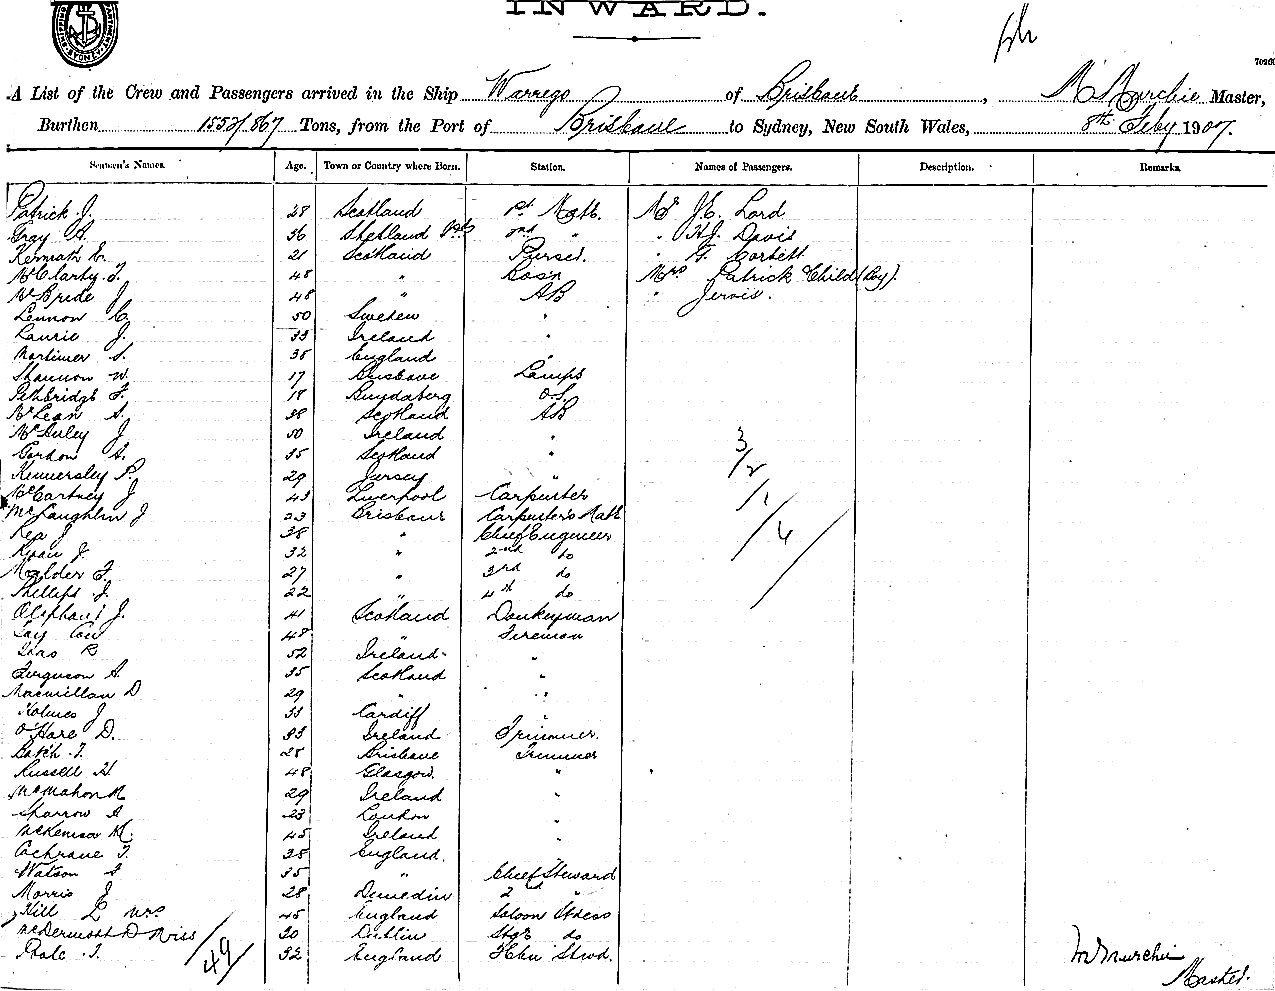 INWARD.
A List of the Crew and Passengers arrived in the Ship Warrego of Brisbane, Master,
Burthen Tons, from the Port of Brisbane to Sydney, New South Wales, 8th Feby 1907.
Seamen's Names. Age. Town or Country where Born. Station. Names of Passengers. Description. Remarks.
Patrick J. 28 Scotland 1st Mate. Mr J.E. Lord
Gray A. 36 Shetland 2nd " " H.J. Davis
E. 21 Scotland Purser. " G. Corbett
McClarty J. 48 " Bosn Mrs Patrick Child (Boy).
McBride J. 48 " AB " Jervis.
Lennon C. 50 Sweden "
Laurie J. 33 Ireland "
Mortimer S. 35 England "
Shannon W. 17 Brisbane Lamps
Pethbridge F. 18 Bundaberg O.S.
McLean A. 38 Scotland AB
McAuley J 50 Ireland "
Gordon A. 35 Scotland "
Kennersley P. 29 Jersey "
McCartney J 43 Liverpool Carpenter
McLaughlin J 23 Brisbane Carpenter's Mate
Rea J 38 " Chief Engineer
Ryan J. 32 " 2nd do
F. 27 " 3rd do
Phillips J. 22 " 4th do
Oliphant J. 41 Scotland Donkeyman
48 " Fireman
R 52 Ireland "
Ferguson A. 35 Scotland "
Macmillan D 29 " "
Holmes J 33 Cardiff "
O'Hare D. 33 Ireland Trimmer.
Batch T. 28 Brisbane Trimmer
Russell H 48 Glasgow. "
McMahon M 29 Ireland "
Sparrow A 23 London "
McKenna M. 45 Ireland "
Cochrane T. 38 England. "
Watson 35 " Chief Steward
Morris J 28 Dunedin 2nd "
Hill L Mrs 45 England Saloon Stdess
McDermott D Miss 30 Dublin Stge do
Poole T. 32 England
49
Master.